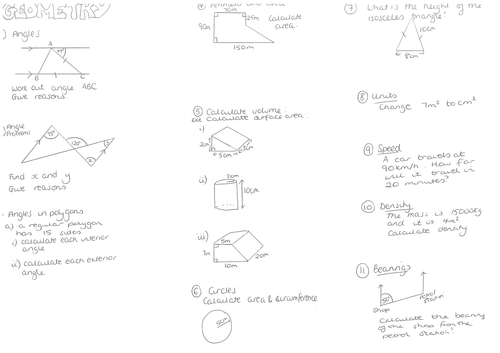 GEOMETRY
) Angles
A
B
C
Work out angle ABC
Give reasons.
Angle
Problem)
120°
x
Find x and y
Give reasons
Angles in polygons
a) a regular polygon
has 15 sides
i) calculate each interior
angle
ii) calculate each exterior
angle
70m
25m
90m
150m
Calculate
area.
⑤ Calculate volume:
Calculate surface area.
i)
2m
5cm
ii)
10cm
iii)
5m
3m
10m
20m
⑥ Circles
Calculate area & circumference
⑦ What is the height of the
isosceles triangle?
10cm
8cm
⑧ Units
Change 7m² to cm²
⑨ Speed
A car travels at
90km/h. How far
will it travel in
20 minutes?
⑩ Density
The mass is 15000kg
and it is 4m³
Calculate density
⑪ Bearings
Shop
petrol
station
Calculate the bearing
of the shop from the
petrol station?